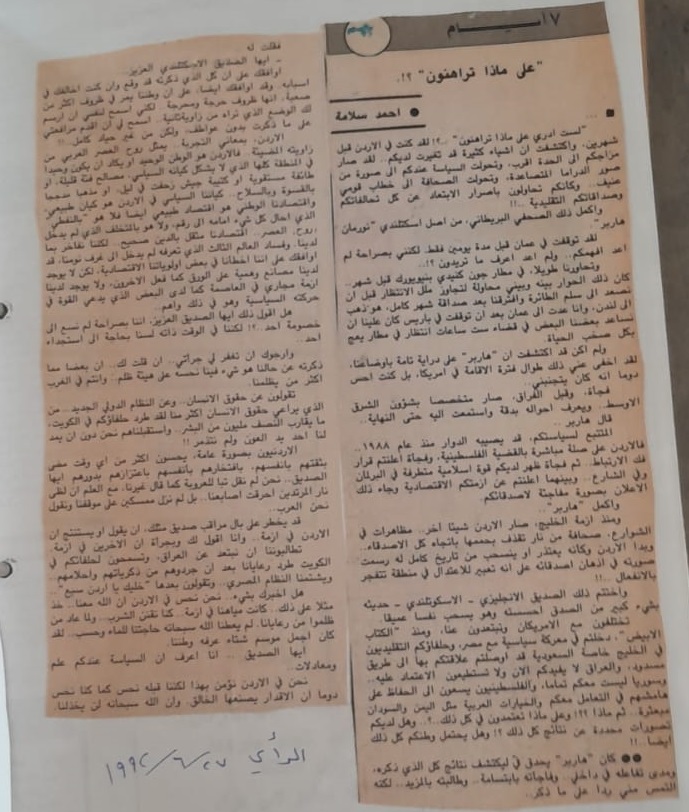 ١٧ أيــــــــام
"على ماذا تراهنون" ؟!.
● احمد سلامة
"لست ادري على ماذا تراهنون" ..؟! لقد كنت في الاردن قبل
شهرين، واكتشفت ان أشياء كثيرة قد تغيرت لديكم.. لقد صار
مزاجكم الى الحدة اقرب، وتحولت السياسة عندكم الى صورة من
صور الدراما المتصاعدة، وتحولت الصحافة الى خطاب قومي
عنيف.. وكأنكم تحاولون باصرار الابتعاد عن كل تحالفاتكم
وصداقاتكم التقليدية ..!!
واكمل ذلك الصحفي البريطاني، من اصل اسكتلندي "نورمان
هاربر".
لقد توقفت في عمان قبل مدة يومين فقط. لكنني بصراحة لم
اعد افهمكم.. ولم اعد اعرف ما تريدون ؟!..
وتحاورنا طويلا، في مطار جون كنيدي بنيويورك قبل شهر..
كان ذلك الحوار بينه وبيني محاولة لتجاوز ملل الانتظار قبل ان
نصعد الى سلم الطائرة وافترقنا بعد صداقة شهر كامل، هو ذهب
الى لندن، وانا عدت الى عمان بعد ان توقفت في باريس كان علينا ان
نساعد بعضنا البعض في قضاء ست ساعات انتظار في مطار يعج
بكل صخب الحياة.
ولم اكن قد اكتشفت ان "هاربر" على دراية تامة باوضاعنا،
لقد اخفى عني ذلك طوال فترة الاقامة في امريكا، بل كنت احس
دوما انه كان يتجنبني..
فجأة، وقبل الفراق، صار متخصصا بشؤون الشرق
الاوسط.. ويعرف احواله بدقة واستمعت اليه حتى النهاية..
قال هاربر ..
المتتبع لسياستكم، قد يصيبه الدوار منذ عام ١٩٨٨..
فالاردن على صلة مباشرة بالقضية الفلسطينية، وفجأة اعلنتم قرار
فك الارتباط.. ثم فجأة ظهر لديكم قوة اسلامية متطرفة في البرلمان
وفي الشارع.. وبينهما اعلنتم عن ازمتكم الاقتصادية وجاء ذلك
الاعلان بصورة مفاجئة لاصدقائكم.
واكمل "هاربر"..
ومنذ ازمة الخليج، صار الاردن شيئا آخر.. مظاهرات في
الشوارع، صحافة من نار تقذف بحممها باتجاه كل الاصدقاء..
وبدا الاردن وكأنه يعتذر او ينسحب من تاريخ كامل له رسمت
صورته في أذهان اصدقائه على انه تعبير للاعتدال في منطقة تتفجر
بالانفعال ..!!
واختتم ذلك الصديق الانجليزي - الاسكوتلندي - حديثه
بشيء كبير من الصدق احسسته وهو يسحب نفسا عميقا.
تختلفون مع الامريكان وتبتعدون عنا، ومنذ "الكتاب
الابيض"، دخلتم في معركة سياسية مع مصر، وحلفاؤكم التقليديون
في الخليج خاصة السعودية قد اوصلتم علاقتكم بها الى طريق
مسدود، والعراق لا يفيدكم الان ولا تستطيعون الاعتماد عليه..
وسوريا ليست معكم تماما، والفلسطينيون يسعون الى الحفاظ على
هامشهم في التعامل معكم والخيارات العربية مثل اليمن والسودان
مبعثرة.. ثم ماذا ؟!! وعلى ماذا تعتمدون في كل ذلك..؟.. وهل لديكم
تصورات محددة عن نتائج كل ذلك ؟ وهل يحتمل وطنكم كل ذلك
ايضا ..!!
●● كان "هاربر" يحدق في ليكتشف نتائج كل الذي ذكره،
ومدى تفاعله في داخلي.. وفاجأته بابتسامة.. وطالبته بالمزيد.. لكنه
التمس مني ردا على ما ذكر..
فقلت له
- ايها الصديق الاسكتلندي العزيز..
اوافقك على ان كل الذي ذكرته قد وقع وان كنت اخالفك في
اسبابه. وقد اوافقك ايضا، على ان وطننا يمر في ظروف اكثر من
صعبة، انها ظروف حرجة ومحرجة. لكني اسمح لنفسي ان ارسم
لك الوضع الذي تراه من زاوية ثانية.. اسمح لي ان اقدم مرافعتي
على ما ذكرت بدون عواطف، ولكن من غير حياد كامل..!!
الاردن، بمعاني التجربة.. يمثل روح العصر العربي من
زاويته المضيئة.. فالاردن هو الوطن الوحيد او يكاد ان يكون وحيدا
في المنطقة كلها الذي لا يشكل كيانه السياسي، مصالح فئة قليلة، او
طائفة مستقوية او كتيبة جيش زحفت في ليل، او مذهبا مدججا
بالقسوة وبالسلاح.. كياننا السياسي في الاردن هو كيان طبيعي
واقتصادنا الوطني هو اقتصاد طبيعي ايضا فلا هو "بالنفطي"
الذي احال كل شيء امامه الى رقم، ولا هو بالمتخلف الذي لم يدخل
،روح، العصر.. اقتصادنا مثقل بالدين صحيح. لكننا نفاخر بما
لدينا. وفساد العالم الثالث الذي تعرفه لم يدخل الى غرف نومنا، قد
اوافقك على اننا اخطأنا في بعض اولوياتنا الاقتصادية، لكن لا يوجد
لدينا مصانع وهمية على الورق كما فعل الاخرون، ولا يوجد لدينا
ازمة مجاري في العاصمة كما لدى البعض الذي يدعي القوة في
حركته السياسية وهو في ذلك واهم.
هل اقول ذلك ايها الصديق العزيز. اننا بصراحة لم نسع الى
خصومة احد..؟! لكننا في الوقت ذاته لسنا بحاجة الى استجداء
احد..
وارجوك ان تغفر لي جرأتي.. ان قلت لك.. ان بعضا مما
ذكرته عن حالنا هو شيء فينا نحسه على هيئة ظلم.. وانتم في الغرب
اكثر من يظلمنا.
تقولون عن حقوق الانسان.. وعن النظام الدولي الجديد.. من
الذي يراعي حقوق الانسان اكثر منا لقد طرد حلفاؤكم في الكويت،
ما يقارب النصف مليون من البشر.. واستقبلناهم نحن دون ان يمد
لنا احد يد العون ولم نتذمر !!
الاردنيون بصورة عامة، يحسون اكثر من اي وقت مضى
بثقتهم بانفسهم، بافتخارهم بانفسهم باعتزازهم بدورهم ايها
الصديق.. نحن لم نقل تبا للعروبة كما قال غيرنا، مع العلم ان لظى
نار المرتدين احرقت اصابعنا.. بل لم نزل ممسكين على موقفنا ونقول
نحن العرب..
قد يخطر على بال مراقب صديق مثلك، ان يقول او يستنتج ان
الاردن في ازمة.. وانا اقول لك وبجرأة ان الاخرين في ازمة.
تطالبوننا ان نبتعد عن العراق، وتسمحون لحلفائكم في
الكويت طرد رعايانا بعد ان جردوهم من ذكرياتهم واحلامهم..
ويشتمنا النظام المصري.. وتقولون بعدها "خليك يا اردن سبع"..
هل اخبرك بشيء.. نحن نحس في الاردن ان الله معنا.. خذ
مثلا على ذلك.. كانت مياهنا في ازمة. كنا نقنن الشرب.. ولما عاد من
ظلموا من رعايانا. لم يعطنا الله سبحانه حاجتنا للماء وحسب.. لقد
كان اجمل موسم شتاء عرفه وطننا.
ايها الصديق .. انا اعرف ان السياسة عندكم علم
ومعادلات..
نحن في الاردن نؤمن بهذا لكننا قبله نحس كما كنا نحس
دوما ان الاقدار يصنعها الخالق. وان الله سبحانه لن يخذلنا.
الرأي ٢٧/٦/١٩٩٢